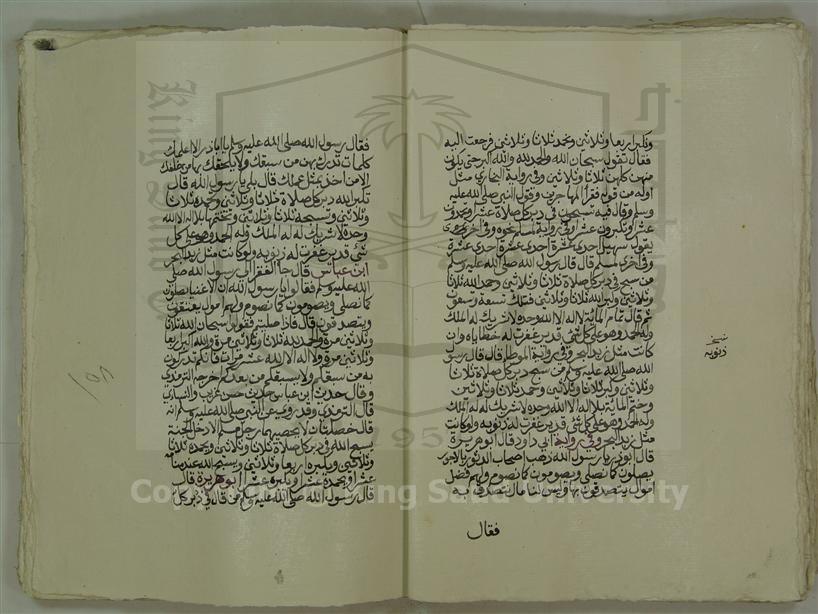 وتكبر اربعا وثلاثين وتحمد ثلاثا وثلاثين فرجعت اليه
فقال تقول سبحان الله والحمد لله والله اكبر حتى يكون
منهن كلهن ثلاثا وثلاثين وفي رواية البخاري مثل
اوله من قول فقرا المهاجرين وقول النبي صلى الله عليه
وسلم وقال فيه تسبحون في دبر كل صلاة عشرا وتحمدون
عشرا وتكبرون عشرا وفي رواية لمسلم نحوه وفي اخرى
يقول سهيل احدى عشرة احدى عشرة احدى عشرة
وفي اخرى لمسلم قال قال رسول الله صلى الله عليه وسلم
من سبح في دبر كل صلاة ثلاثا وثلاثين وحمد الله ثلاثا
وثلاثين وكبر الله ثلاثا وثلاثين فتلك تسعة وتسعون
ثم قال تمام المائة لا اله الا الله وحده لا شريك له له الملك
وله الحمد وهو على كل شي قدير غفرت له خطاياه وان
كانت مثل زبد البحر وفي رواية الموطا قال قال رسول
الله صلى الله عليه وسلم من سبح دبر كل صلاة ثلاثا
وثلاثين وكبر ثلاثا وثلاثين وحمد ثلاثا وثلاثين
وختم المائة بلا اله الا الله وحده لا شريك له له الملك
وله الحمد وهو على كل شي قدير غفرت له ذنوبه ولو كانت
مثل زبد البحر وفي رواية ابي داود قال ابو هريرة
قال ابو ذر يا رسول الله ذهب اصحاب الدثور بالاجور
يصلون كما نصلي ويصومون كما نصوم ولهم فضل
اموال يتصدقون بها وليس لنا مال نتصدق به
فقال
ذنوبه
فقال رسول الله صلى الله عليه وسلم يا ابا ذر الا اعلمك
كلمات تدرك بهن من سبقك ولا يلحقك بها من خلفك
الا من اخذ بمثل عملك قال بلى يا رسول الله قال
تكبر الله دبر كل صلاة ثلاثا وثلاثين وتحمده ثلاثا
وثلاثين وتسبحه ثلاثا وثلاثين وتختمها بلا اله الا الله
وحده لا شريك له له الملك وله الحمد وهو على كل
شي قدير غفرت له ذنوبه ولو كانت مثل زبد البحر
ابن عباس قال جا الفقرا الى رسول الله صلى
الله عليه وسلم فقالوا يا رسول الله ان الاغنيا يصلون
كما نصلي ويصومون كما نصوم ولهم اموال يعتقون
ويتصدقون قال فاذا صليتم فقولوا سبحان الله ثلاثا
وثلاثين مرة والحمد لله ثلاثا وثلاثين مرة والله اكبر اربعا
وثلاثين مرة ولا اله الا الله عشر مرات فانكم تدركون
به من سبقكم ولا يسبقكم من بعدكم اخرجه الترمذي
وقال حديث ابن عباس حديث حسن غريب والنسائي
قال الترمذي وقد روي عن النبي صلى الله عليه وسلم انه
قال خصلتان لا يحصيهما رجل مسلم الا دخل الجنة
يسبح الله في دبر كل صلاة ثلاثا وثلاثين ويحمده ثلاثا
وثلاثين ويكبره اربعا وثلاثين ويسبح الله عند منامه
عشرا ويحمده عشرا ويكبره عشرا ابو هريرة قال
قال رسول الله صلى الله عليه وسلم من قال في دبر كل
١٥٨
King Saud University
Copyright © King Saud University
195